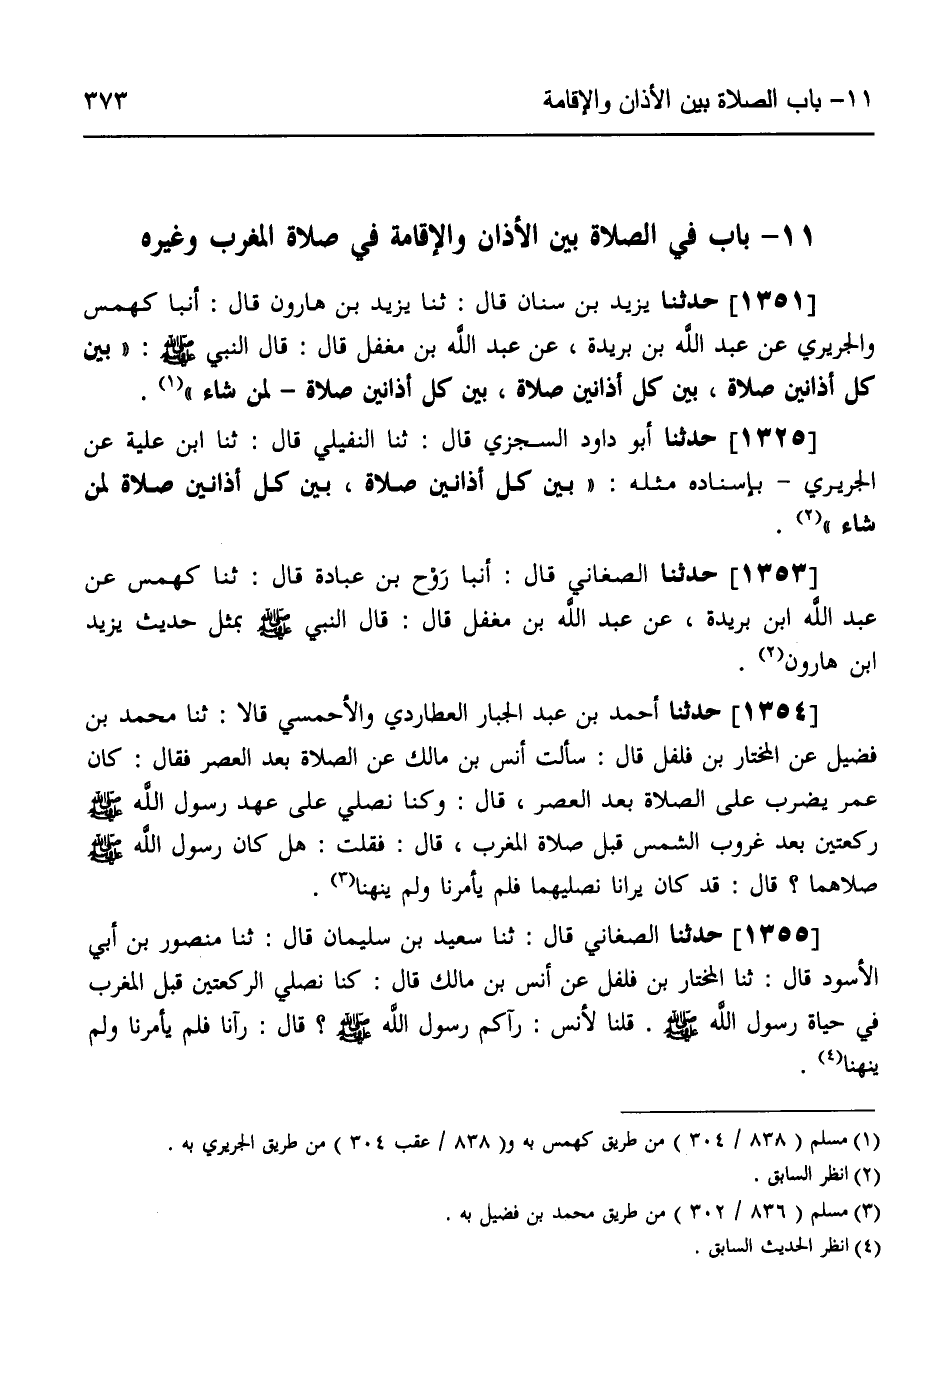 ١١- باب الصلاة بين الأذان والإقامة ٣٧٣
١١- باب في الصلاة بين الأذان والإقامة في صلاة المغرب وغيره
[١٣٥١] حدثنا يزيد بن سنان قال : ثنا يزيد بن هارون قال : أنبا كهمس
والجريري عن عبد اللَّه بن بريدة ، عن عبد اللَّه بن مغفل قال : قال النبي ﷺ : « بين
كل أذانين صلاة ، بين كل أذانين صلاة ، بين كل أذانين صلاة - لمن شاء »(١) .
[١٣٢٥] حدثنا أبو داود السجزي قال : ثنا النفيلي قال : ثنا ابن علية عن
الجريري - بإسناده مثله : « بين كل أذانين صلاة ، بين كل أذانين صلاة لمن
شاء »(٢) .
[١٣٥٣] حدثنا الصغاني قال : أنبا رَوْح بن عبادة قال : ثنا كهمس عن
عبد اللَّه ابن بريدة ، عن عبد اللَّه بن مغفل قال : قال النبي ﷺ بمثل حديث يزيد
ابن هارون(٢) .
[١٣٥٤] حدثنا أحمد بن عبد الجبار العطاردي والأحمسي قالا : ثنا محمد بن
فضيل عن المختار بن فلفل قال : سألت أنس بن مالك عن الصلاة بعد العصر فقال : كان
عمر يضرب على الصلاة بعد العصر ، قال : وكنا نصلي على عهد رسول اللَّه ﷺ
ركعتين بعد غروب الشمس قبل صلاة المغرب ، قال : فقلت : هل كان رسول اللَّه ﷺ
صلاهما ؟ قال : قد كان يرانا نصليهما فلم يأمرنا ولم ينهنا(٣) .
[١٣٥٥] حدثنا الصغاني قال : ثنا سعيد بن سليمان قال : ثنا منصور بن أبي
الأسود قال : ثنا المختار بن فلفل عن أنس بن مالك قال : كنا نصلي الركعتين قبل المغرب
في حياة رسول اللَّه ﷺ . قلنا لأنس : رآكم رسول اللَّه ﷺ ؟ قال : رآنا فلم يأمرنا ولم
ينهنا(٤) .
(١) مسلم ( ٨٣٨ / ٣٠٤ ) من طريق كهمس به و( ٨٣٨ / عقب ٣٠٤ ) من طريق الجريري به .
(٢) انظر السابق .
(٣) مسلم ( ٨٣٦ / ٣٠٢ ) من طريق محمد بن فضيل به .
(٤) انظر الحديث السابق .